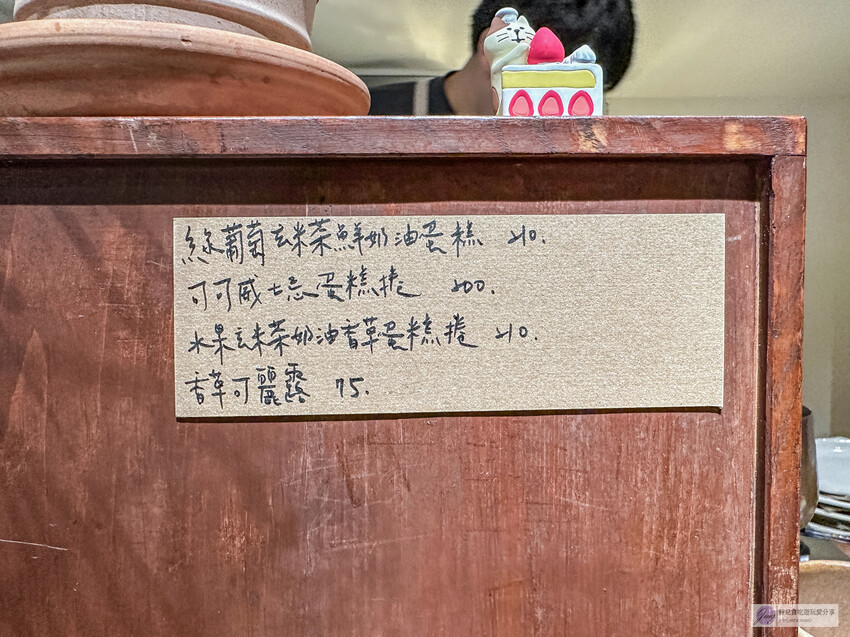 綠葡萄玄米茶鮮奶油蛋糕 210.
可可威士忌蛋糕捲 200.
水果玄米茶奶油香草蛋糕捲 210.
香草可麗露 75.
軒兒貪吃遊玩愛分享